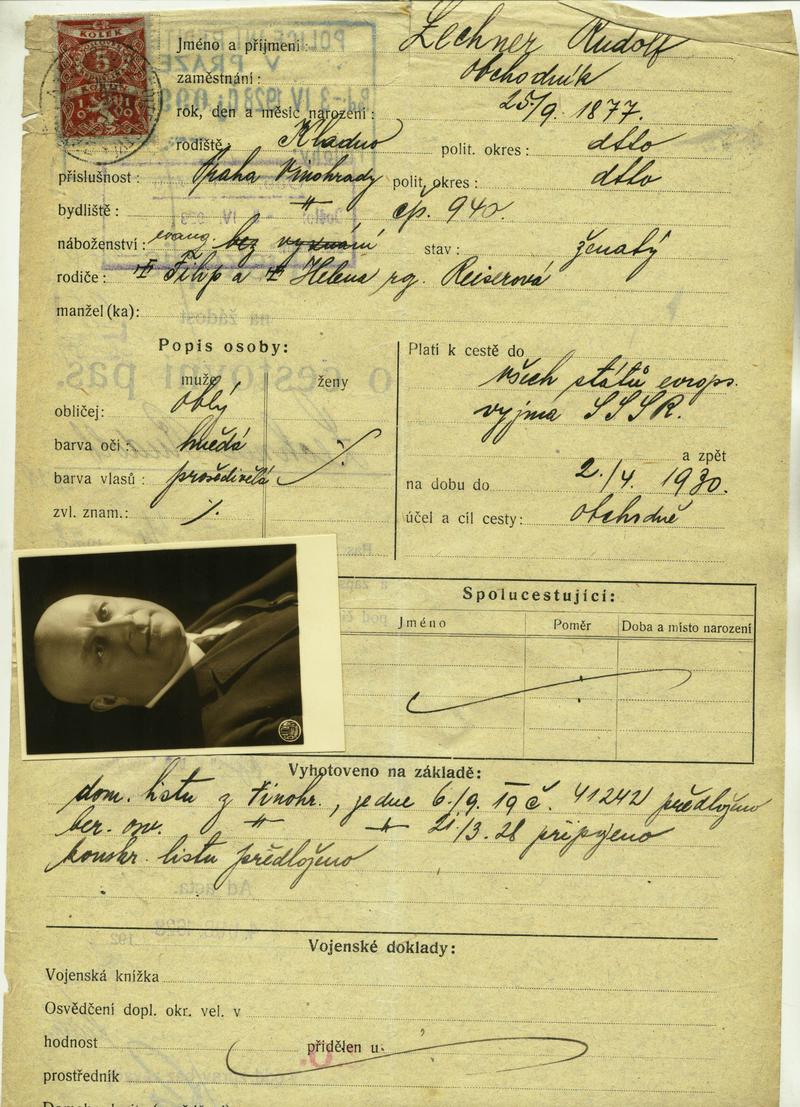 KOLEK
5
Jméno a příjmení: Lechner Rudolf
zaměstnání: obchodník
rok, den a měsíc narození: 25/9. 1877.
rodiště Kladno polit. okres: dtto
příslušnost: Praha Vinohrady polit. okres: dtto
bydliště: " čp. 940.
náboženství: evang. bez vyznání stav: ženatý
rodiče: Filip a Helena Reiserová
manžel (ka):
Popis osoby:
muže ženy
obličej: oblý
barva očí: hnědá
barva vlasů: prošedivělá
zvl. znam.: ./.
Platí k cestě do
všech států evrops.
vyjma SSSR.
a zpět
na dobu do 2./4. 1930.
účel a cíl cesty: obchodně
Spolucestující:
Jméno Poměr Doba a místo narození
Vyhotoveno na základě:
dom. listu z Vinohr., 6./9. 19 č. 41242 předloženo
ber. osv. " " 21/3. 28 připojeno
konskr. listu předloženo
Vojenské doklady:
Vojenská knížka
Osvědčení dopl. okr. vel. v
hodnost přidělen u
prostředník